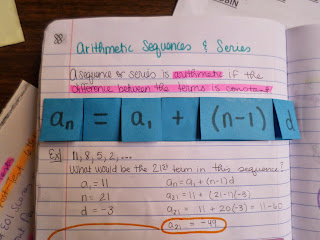 Arithmetic Sequences & Series
A sequence or series is arithmetic if the
difference between the terms is constant
an = a1 + (n-1) d
Ex) 11, 8, 5, 2, ...
What would be the 21st term in this sequence?
a1 = 11 an = a1 + (n-1)d
n = 21 a21 = 11 + (21-1)(-3)
d = -3 a21 = 11 + 20(-3) = 11-60
a21 = -49